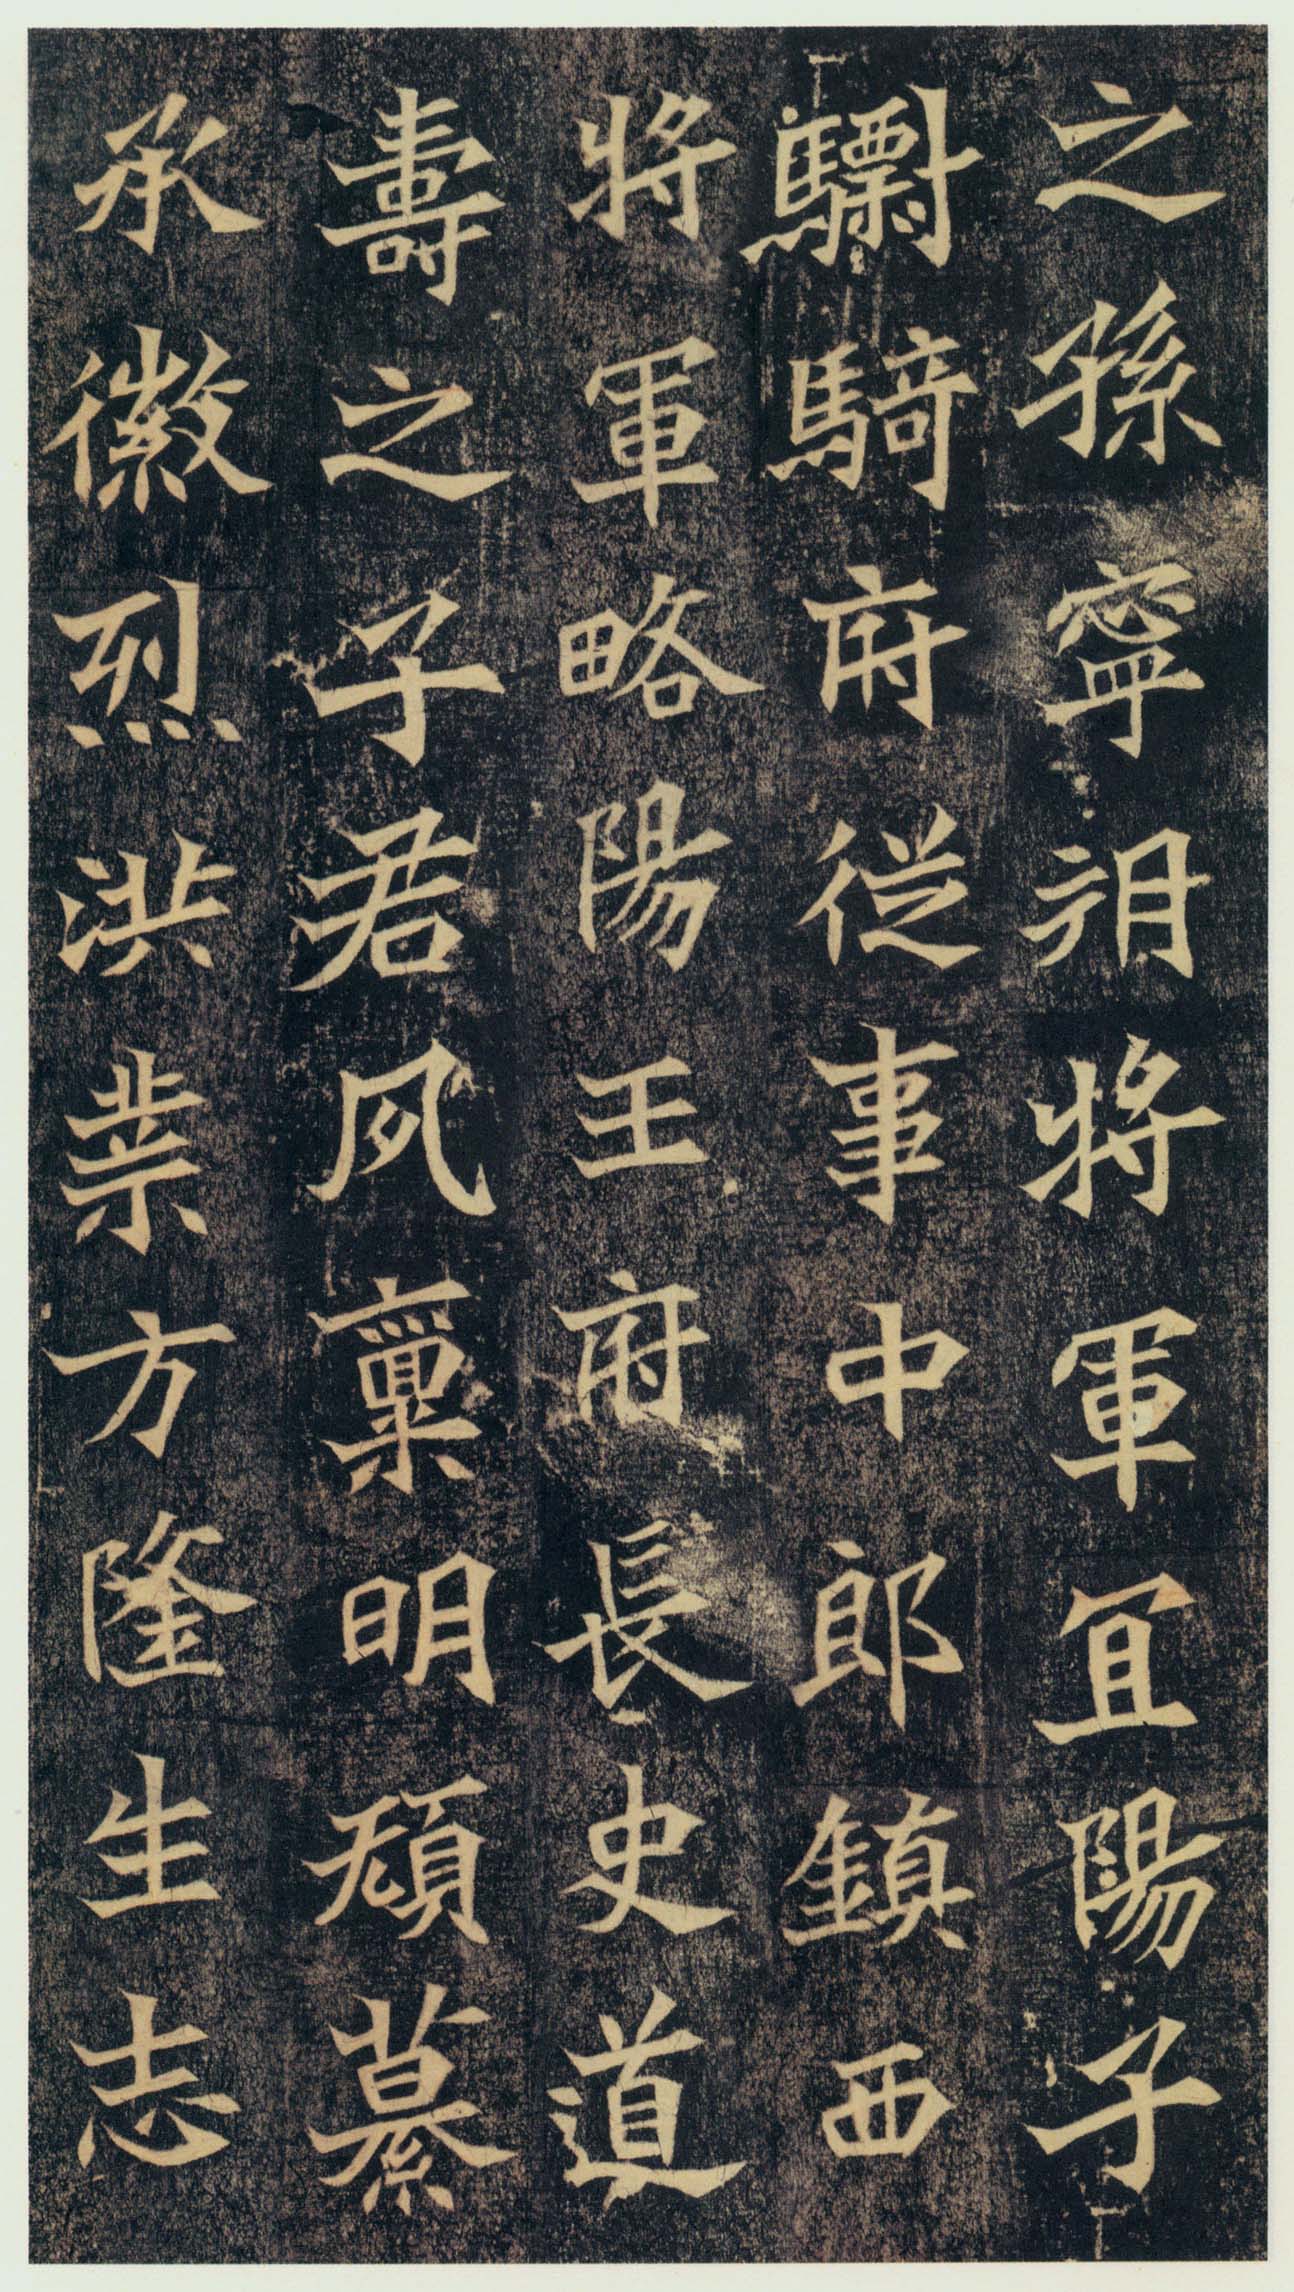 之孫寧朔將軍冝陽子
驃騎府從事中郎鎮西
將軍略陽王府長史道
壽之子君夙稟明頑慕
承徽烈洪業方隆生志